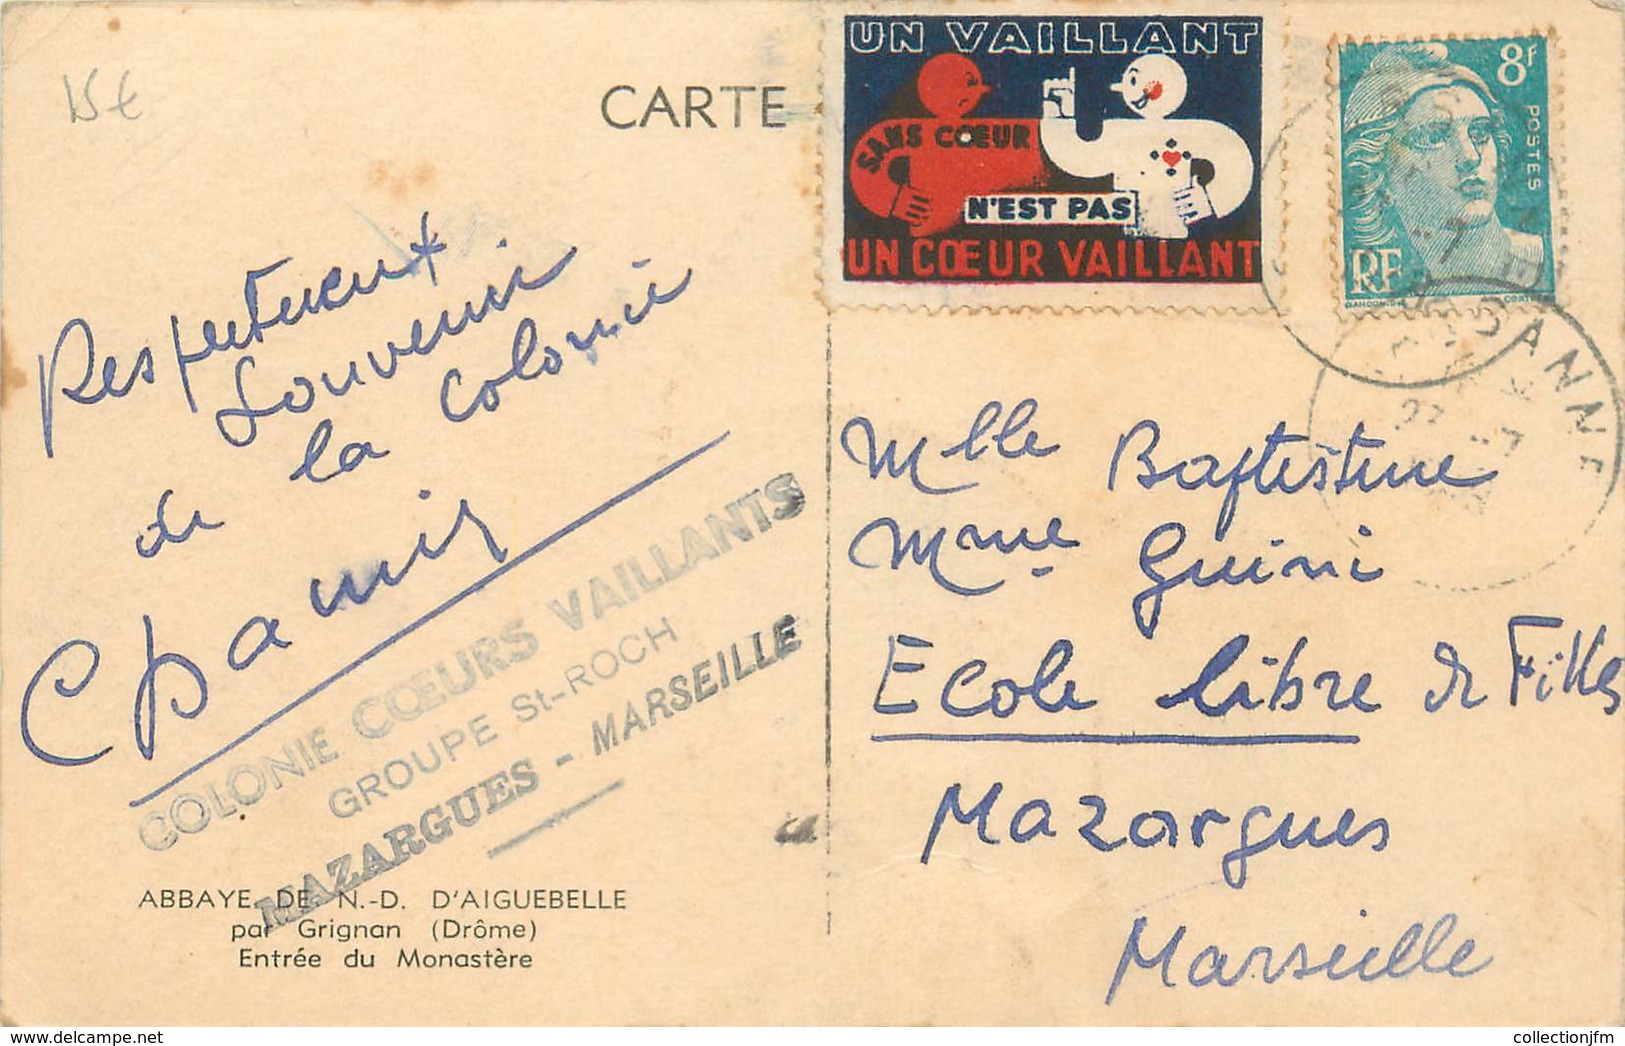 15€
CARTE
UN VAILLANT
SANS CŒUR
N'EST PAS
UN CŒUR VAILLANT
8f
POSTES
RF
Respectueux
Souvenir
de la colonie
COLONIE CŒURS VAILLANTS
GROUPE St-ROCH
MAZARGUES - MARSEILLE
ABBAYE DE N.-D. D'AIGUEBELLE
par Grignan (Drôme)
Entrée du Monastère
Mlle Baptistine
Mme Guini
Ecole libre de Filles
Mazargues
Marseille
collectionjfm